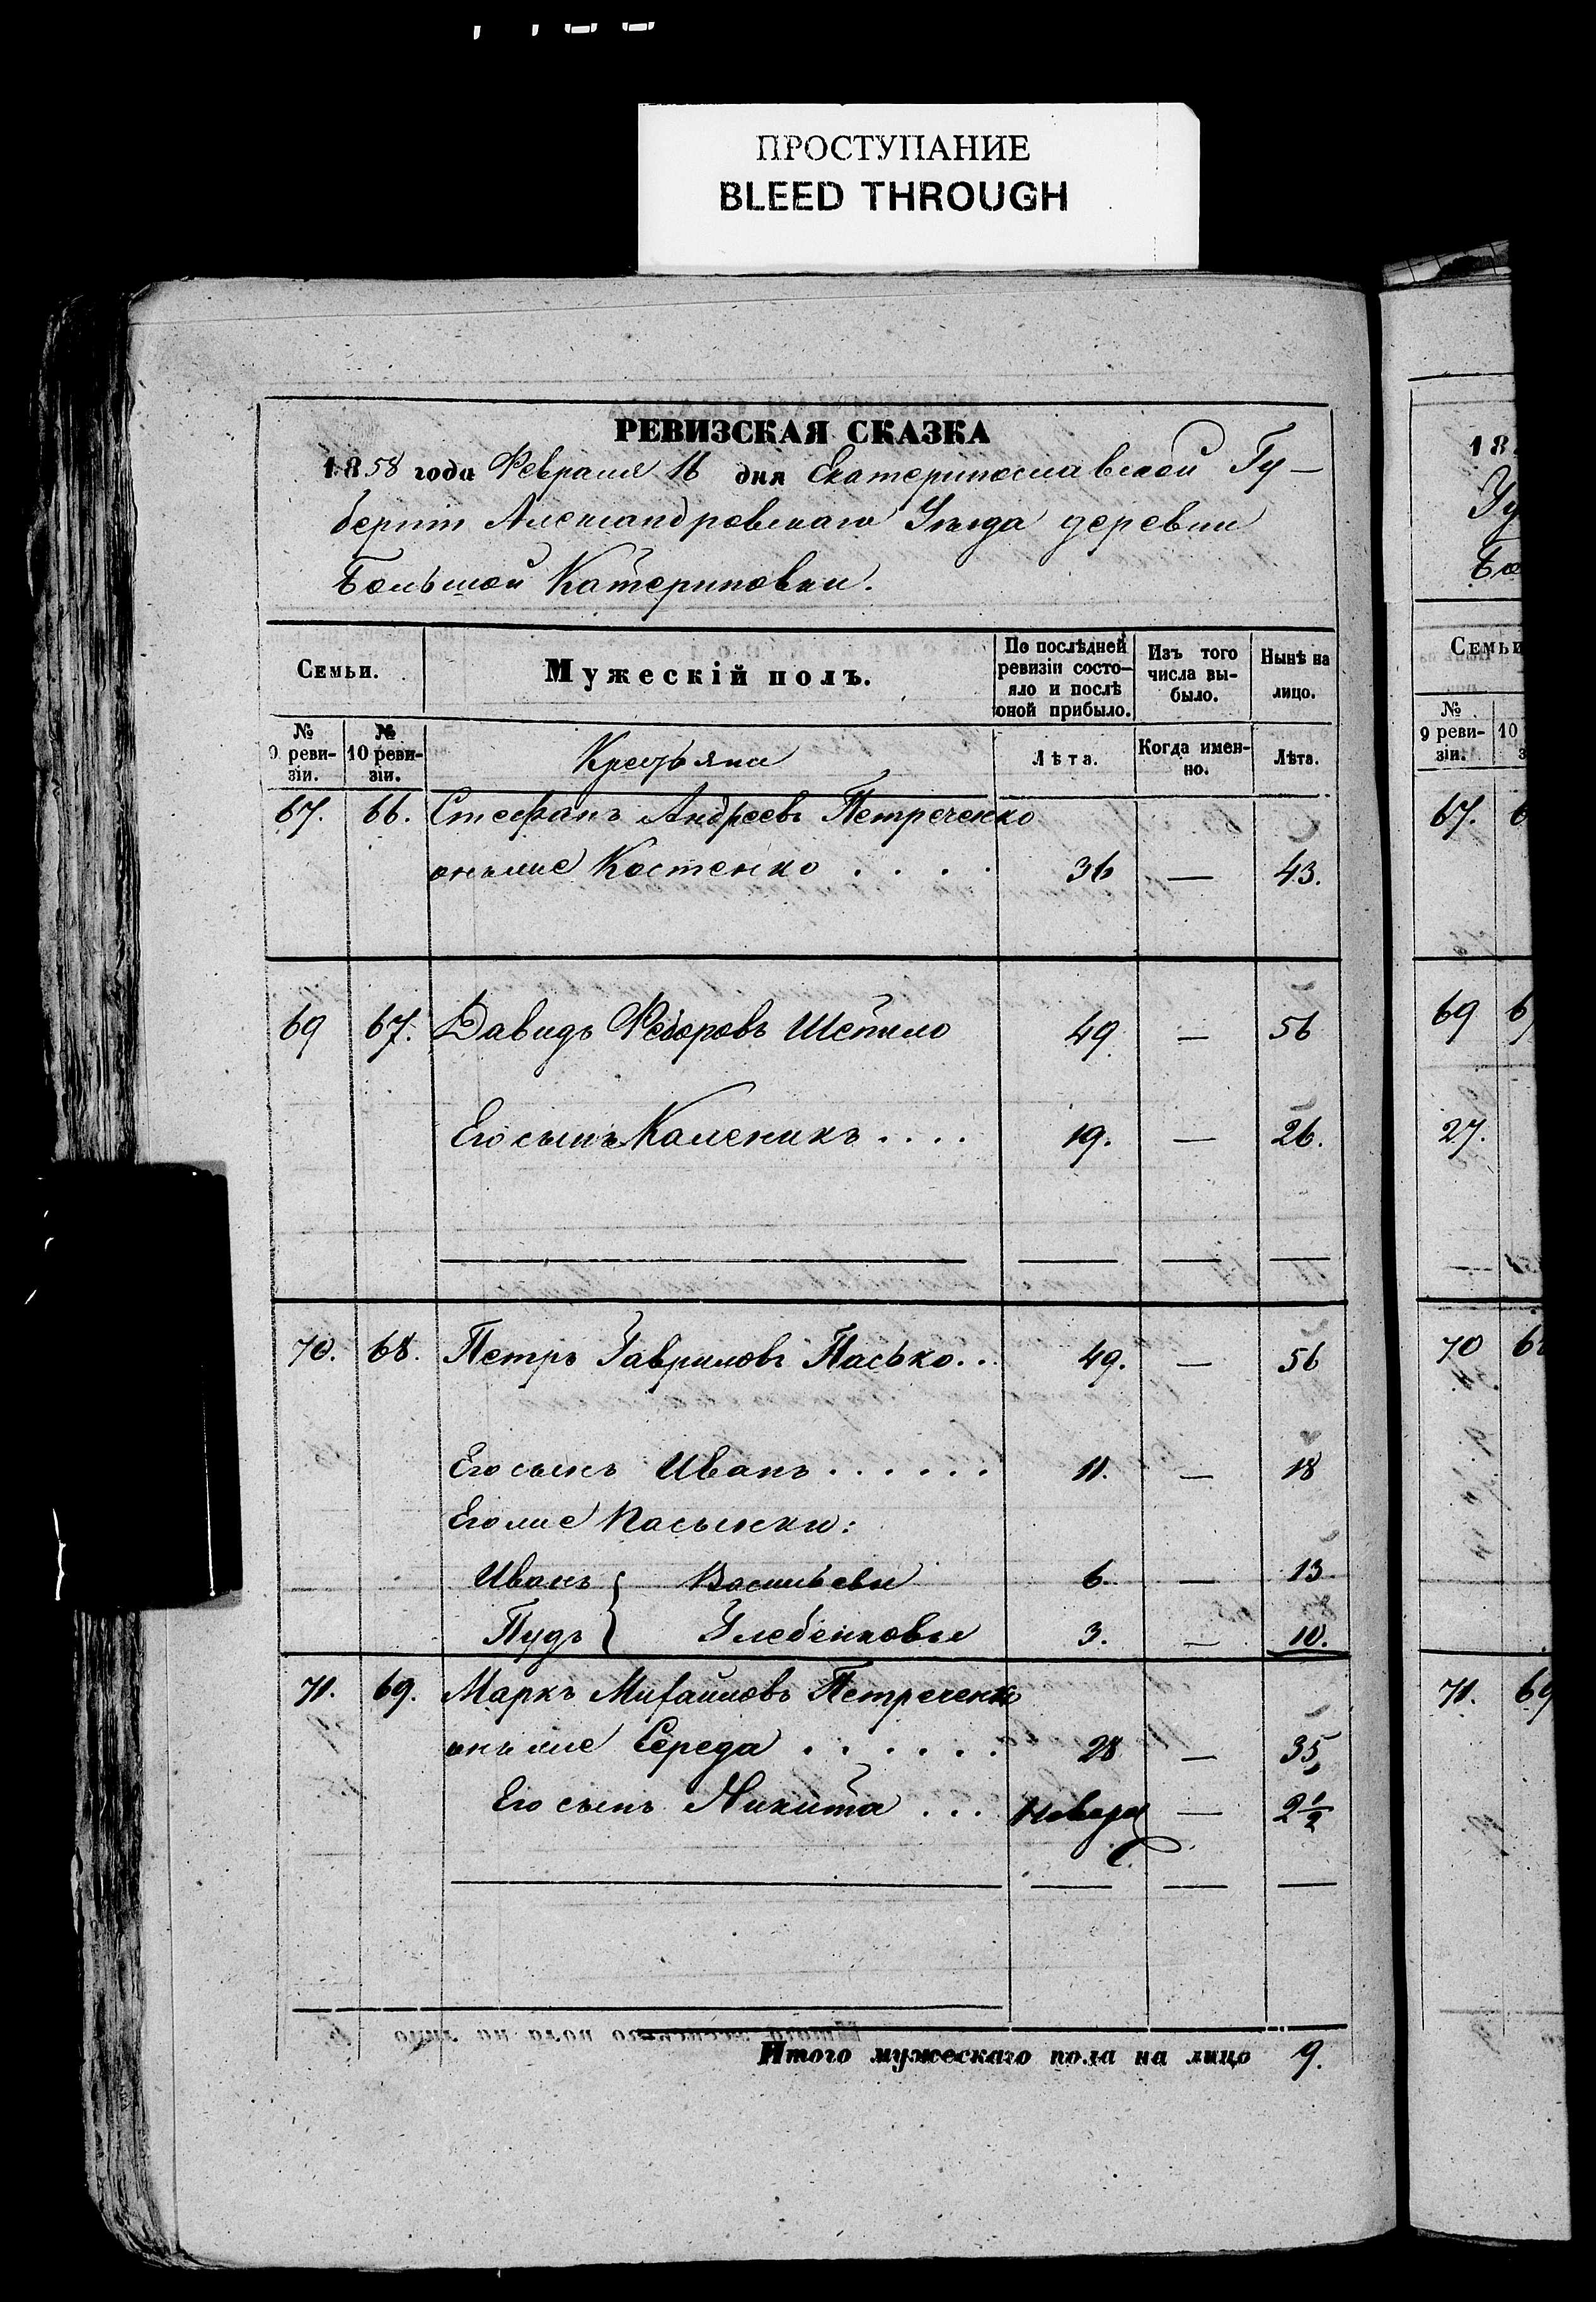 ПРОСТУПАНИЕ
BLEED THROUGH
РЕВИЗСКАЯ СКАЗКА
1858 года Февраля 16 дня Екатеринославской Гу-
берніи Александровскаго Уѣзда деревни
Большой Катериновки.
Семьи. Мужескій полъ. По послѣдней ревизіи состояло и послѣ оной прибыло. Изъ того числа выбыло. Нынѣ на лицо.
№ 9 ревизіи. № 10 ревизіи. Крестьяне Лѣта. Когда именно. Лѣта.
67. 66. Стефанъ Андреевъ Петреченко
онъ же Костенко . . . . 36 — 43.
69 67. Давидъ Федоровъ Шепило 49 — 56
Его сынъ Каленикъ . . . . 19. — 26.
70. 68. Петръ Гавриловъ Пасько . . 49. — 56
Его сынъ Иванъ . . . . . . 11. — 18
Его же пасынки:
Иванъ { Васильевы 6. — 13
Пудъ { Глебенковы 3. — 10.
71. 69. Маркъ Михайловъ Петреченко
онъ же Середа . . . . . . 28 — 35
Его сынъ Никита . . . новор — 2½
Итого мужескаго пола на лицо 9.
18
Гу
Бо
Семьи
№ 9 ревизіи. 10
67. 6
69 6
27.
70 6
71. 69